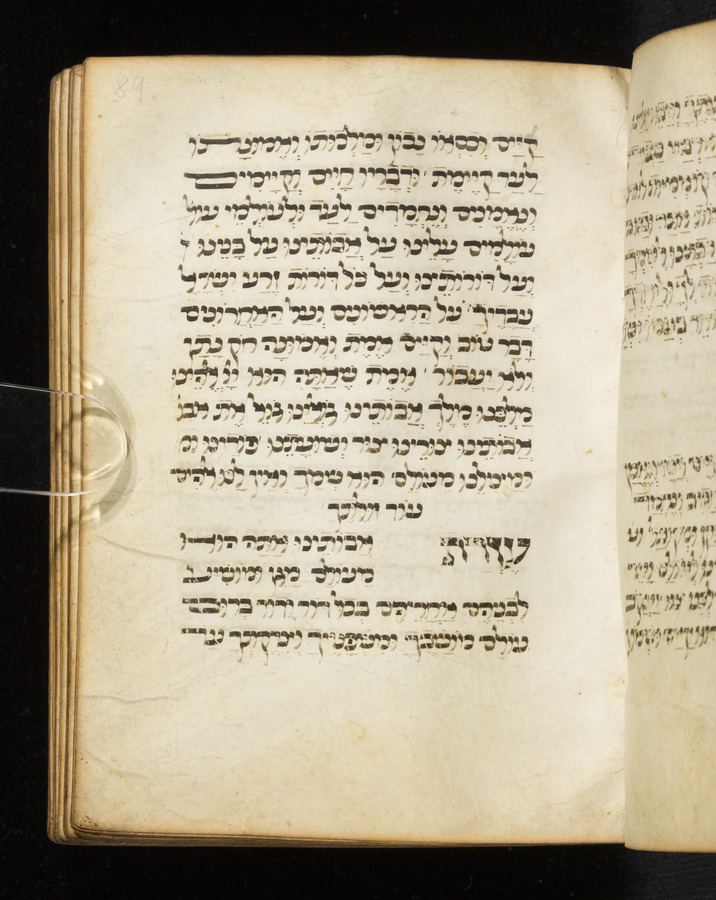 89
קיים וכסאו נכון ומלכותו ואמונתו
לעד קיימת ודבריו חיים וקיימים
ונאמנים ונחמדים לעד ולעולמי עול
עולמים עלינו על אבותינו על בנינו ו
ועל דורותינו ועל כל דורות זרע ישראל
עבדיך על הראשונים ועל האחרונים
דבר טוב וקיים אמת ואמונה חק נתן
ולא יעבור אמת שאתה הוא יי אלהינו
מלכנו מלך אבותינו גאלינו גואל את אבו
אבותינו יוצרינו צור ישועתנו פודינו ומ
ומצילנו מעולם הוא שמך ואין לנו אלהים
עוד זולתך
עזרת אבותינו אתה הוא
מעולם מגן ומושיע
לבניהם אחריהם בכל דור ודור ברום
עולם מושבך ומשפטיך וצדקתך עד